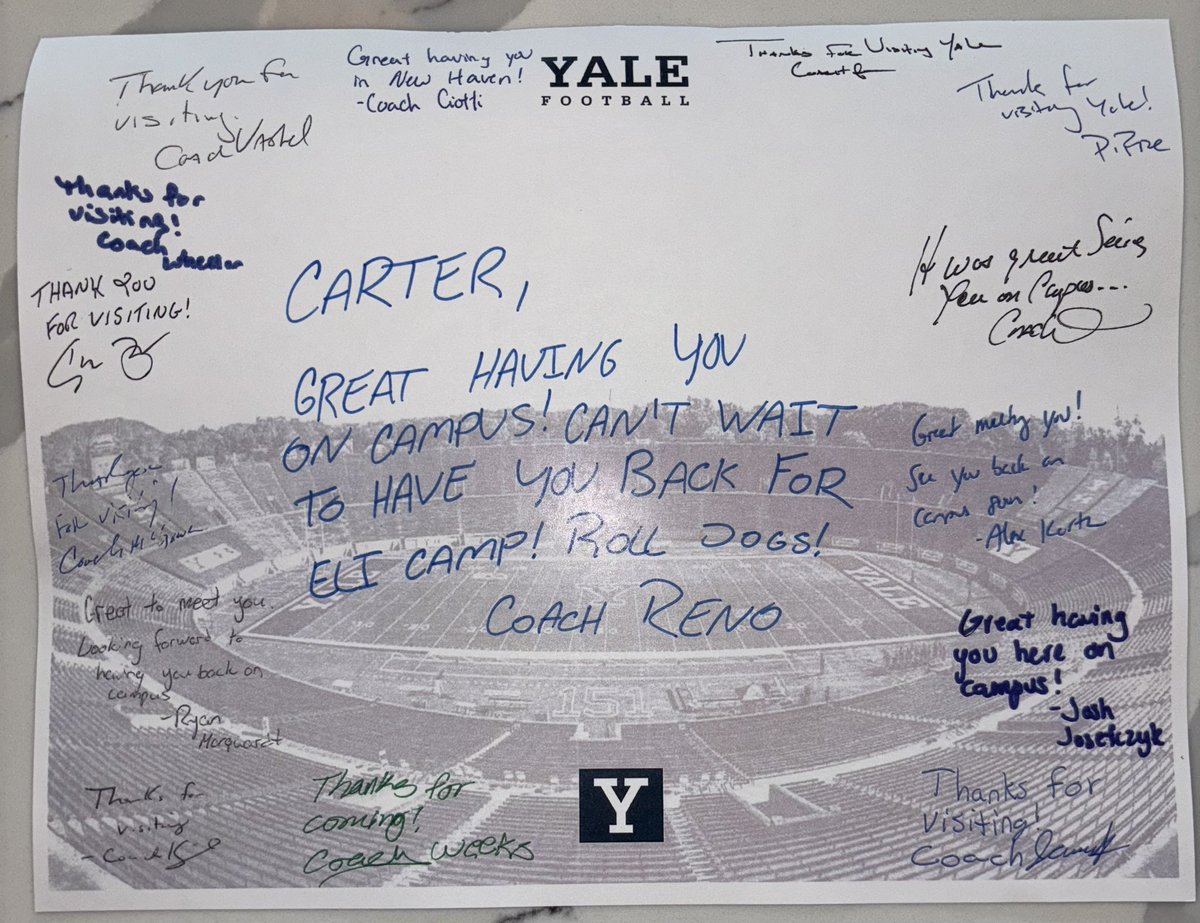 Thank you for
visiting.
Coach Vashel
Great having you
in New Haven!
-Coach Ciotti
YALE
FOOTBALL
Thanks for Visiting Yale
Thank for
visiting Yale!
P. Rae
Thanks for
visiting!
Coach
Wheeler
THANK YOU
FOR VISITING!
It was great Seeing
You on Campus...
Coach
CARTER,
GREAT HAVING YOU
ON CAMPUS! CAN'T WAIT
TO HAVE YOU BACK FOR
ELI CAMP! ROLL DOGS!
COACH RENO
Thank you
For visiting!
Coach
Great meeting you!
See you back on
campus soon!
-Alex Kertz
YALE
Great to meet you.
Looking forward to
having you back on
campus
-Ryan
Marquardt
Great having
you here on
campus!
-Josh
Josefczyk
Thanks for
visiting
-Coach
Thanks for
coming!
Coach Weeks
Y
Thanks for
visiting!
Coach